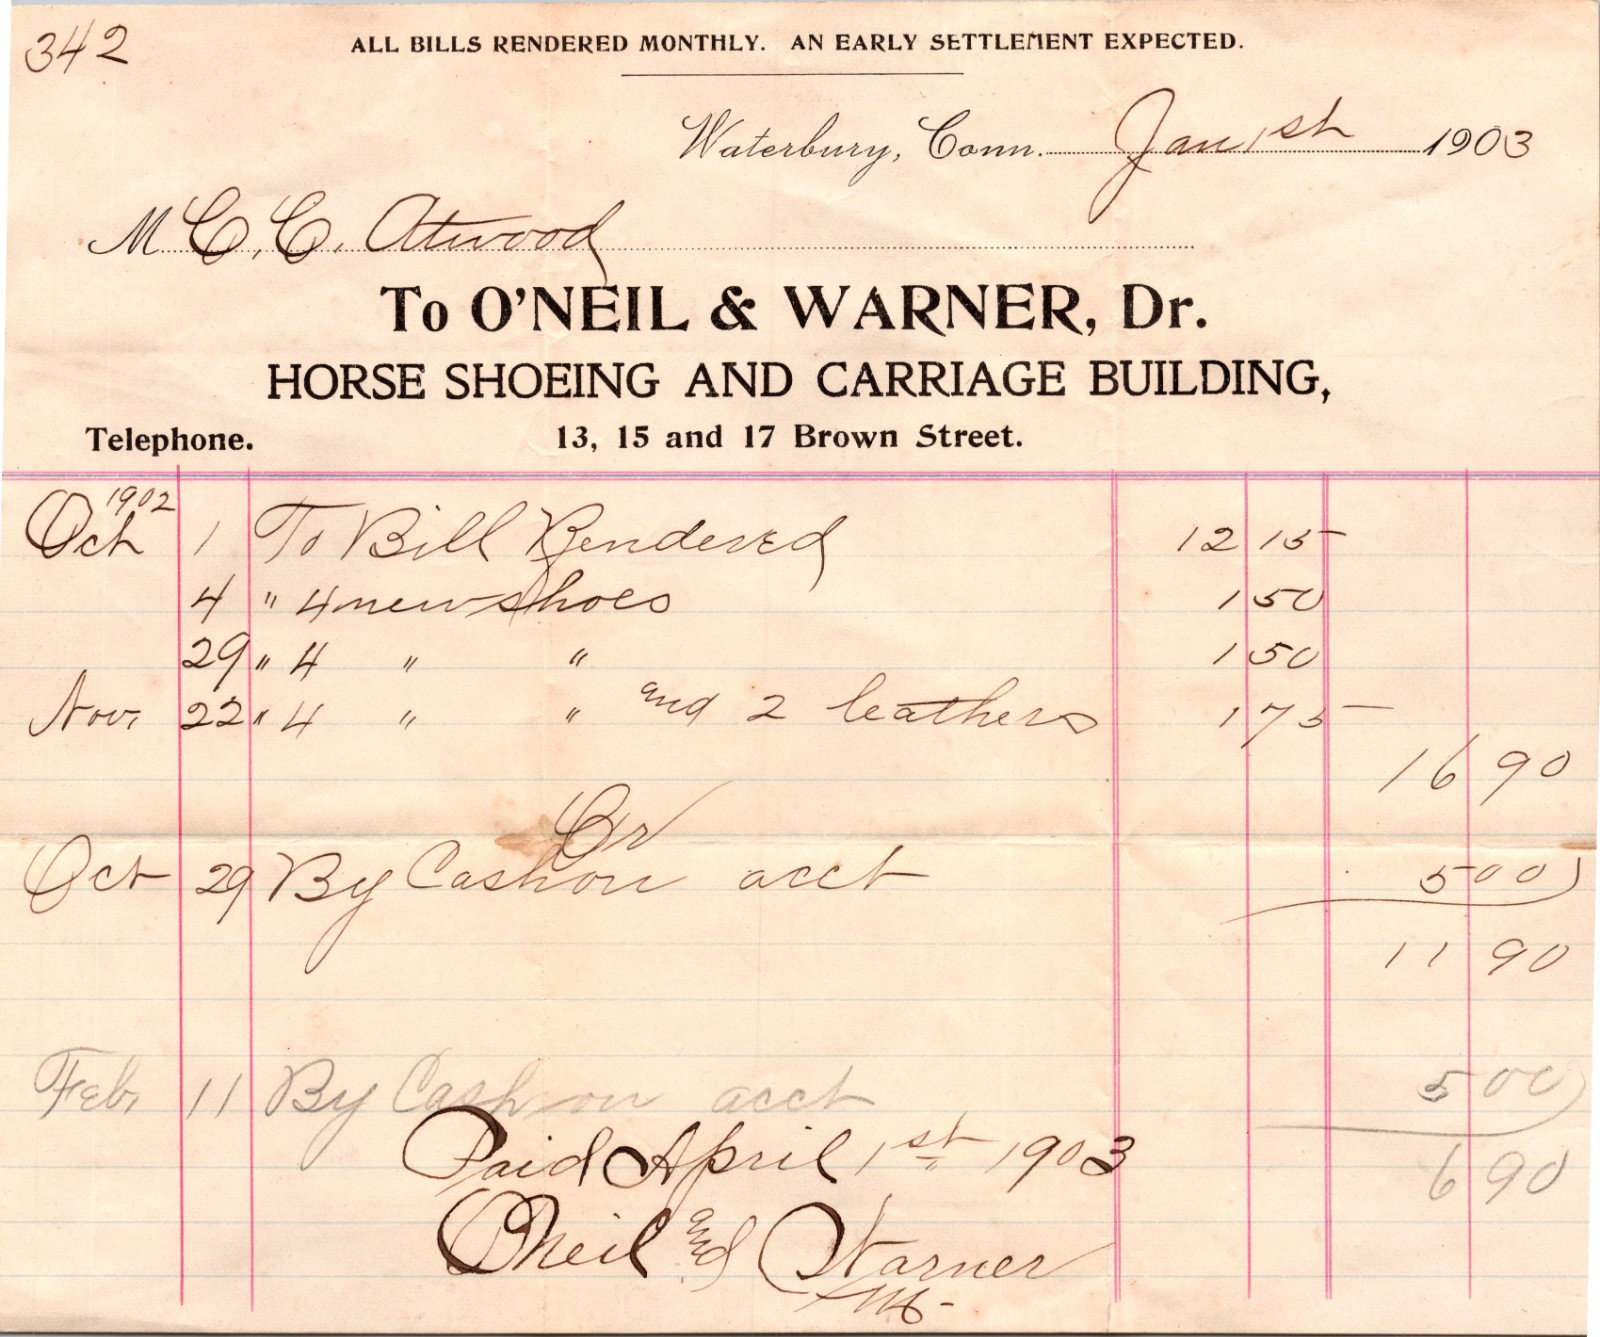 342
ALL BILLS RENDERED MONTHLY. AN EARLY SETTLEMENT EXPECTED.
Waterbury, Conn. Jan 1st 1903
M C. C. Atwood
To O'NEIL & WARNER, Dr.
HORSE SHOEING AND CARRIAGE BUILDING,
Telephone. 13, 15 and 17 Brown Street.
1902
Oct 1 To Bill Rendered 12 15
4 " 4 new shoes 1 50
29 " 4 " " 1 50
Nov. 22 " 4 " " and 2 leathers 1 75
16 90
Cr
Oct 29 By Cash on acct 5 00
11 90
Feb. 11 By Cash on acct 5 00
Paid April 1st 1903
6 90
O'Neil and Warner